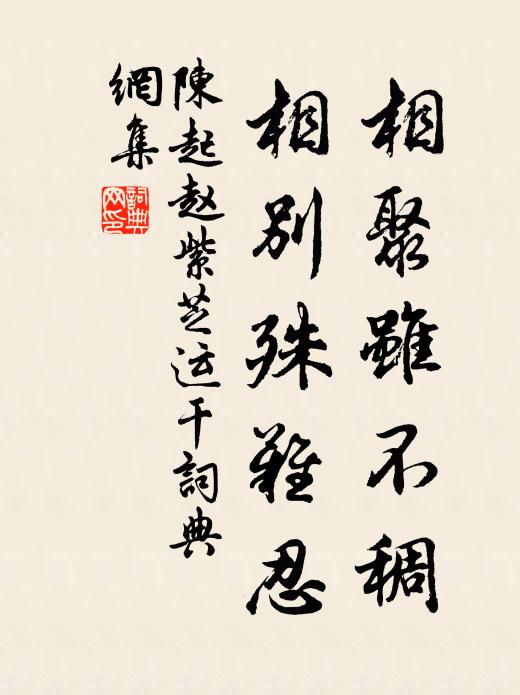 相聚雖不稠
相別殊難忍
陳起赵紫芝运干詞典
網集
詞典網印